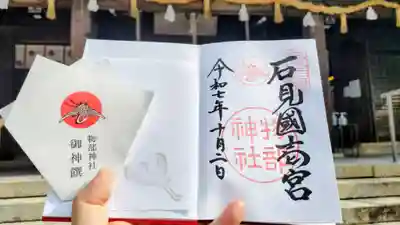 石見國一宮
物部神社
令和七年十月二日
物部神社
御神饌